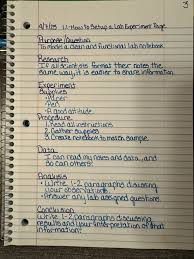 3
1.1 How to Setup a Lab Experiment Page
Purpose/Question
To model a clean and functional lab notebook.
Research
If all scientists format their notes the
same way, it is easier to share information.
Experiment
Supplies
• Paper
• Pen
• A good attitude
Procedure
1. Read all instructions
2. Gather supplies
3. Create notebook to match sample.
Data
I can read my notes and data, and
so can others!
Analysis
• Write 1-2 paragraphs discussing
your observations.
• Answer any lab assigned questions.
Conclusion
Write 1-2 paragraphs discussing
results and your interpretation of that
information!